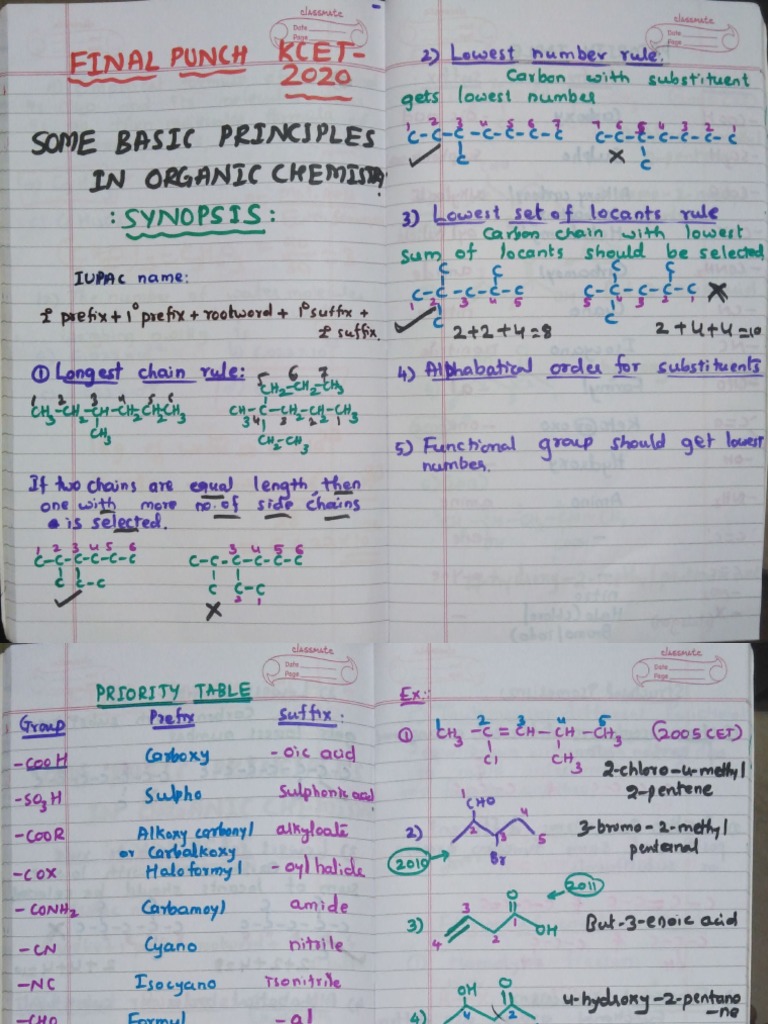 classmate
Date
Page
FINAL PUNCH KCET-
2020
SOME BASIC PRINCIPLES
IN ORGANIC CHEMISTRY
:SYNOPSIS:
IUPAC name:
2° prefix + 1° prefix + rootword + 1° suffix +
2° suffix.
① Longest chain rule:
5 6 7
CH2-CH2-CH3
1 2 3 4 5 6
CH3-CH2-CH-CH2-CH2-CH3
CH3
CH-C-CH-CH2-CH2-CH3
3 4 3 2 1
CH2-CH3
If two chains are equal length, then
one with more no. of side chains
is selected.
1 2 3 4 5 6
C-C-C-C-C-C
C C-C
3 4 5 6
C-C-C-C-C-C
C C-C
2 1
classmate
Date
Page
2) Lowest number rule:
Carbon with substituent
gets lowest number
1 2 3 4 5 6 7
C-C-C-C-C-C-C
C
7 6 5 4 3 2 1
C-C-C-C-C-C-C
C
3) Lowest set of locants rule
Carbon chain with lowest
sum of locants should be selected
C C
C-C-C-C-C
1 2 3 4 5
C
2+2+4=8
C C
C-C-C-C-C
5 4 3 2 1
C
2+4+4=10
4) Alphabatical order for substituents
5) Functional group should get lowest
number.
classmate
Date
Page
PRIORITY TABLE
Group Prefix Suffix:
-COOH Carboxy -oic acid
-SO3H Sulpho Sulphonic acid
-COOR Alkoxy carbonyl alkyloate
or Carbalkoxy
-COX Haloformyl -oyl halide
-CONH2 Carbamoyl amide
-CN Cyano nitrile
-NC Isocyano Isonitrile
-CHO Formyl -al
classmate
Date
Page
Ex:
1 2 3 4 5
① CH3-C=CH-CH-CH3 (2005 CET)
Cl CH3
2-chloro-4-methyl
2-pentene
1
CHO
4
2) 2 3 5
Br
2010
3-bromo-2-methyl
pentanal
2011
O
3) 4 3 2 1 OH
But-3-enoic acid
OH O
4) 4 2
4-hydroxy-2-pentano
-ne